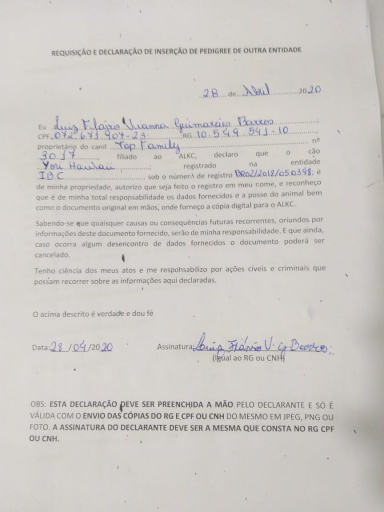 REQUISIÇÃO E DECLARAÇÃO DE INSERÇÃO DE PEDIGREE DE OUTRA ENTIDADE
28 de Abril 2020
Eu Luiz Flavio Vianna Guimaraes Barros
CPF 072.671.907-23 RG 10.549.541-10,
proprietário do canil Top Family nº
3017 filiado ao ALKC, declaro que o cão
Yori registrado na entidade
IBC sob o número de registro e
de minha propriedade, autorizo que seja feito o registro em meu nome, e reconheço
que é de minha total responsabilidade os dados fornecidos e a posse do animal bem
como o documento original em mãos, onde forneço a cópia digital para o ALKC.
Sabendo-se que quaisquer causas ou consequências futuras recorrentes, oriundos por
informações deste documento fornecido, serão de minha responsabilidade. E que ainda,
caso ocorra algum desencontro de dados fornecidos o documento poderá ser
cancelado.
Tenho ciência dos meus atos e me responsabilizo por ações cíveis e criminais que
possam recorrer sobre as informações aqui declaradas.
O acima descrito é verdade e dou fé
Data: 28/04/2020 Assinatura: Luiz Flávio V. G Barros
(Igual ao RG ou CNH)
OBS: ESTA DECLARAÇÃO DEVE SER PREENCHIDA A MÃO PELO DECLARANTE E SÓ É
VÁLIDA COM O ENVIO DAS CÓPIAS DO RG E CPF OU CNH DO MESMO EM JPEG, PNG OU
FOTO. A ASSINATURA DO DECLARANTE DEVE SER A MESMA QUE CONSTA NO RG CPF
OU CNH.